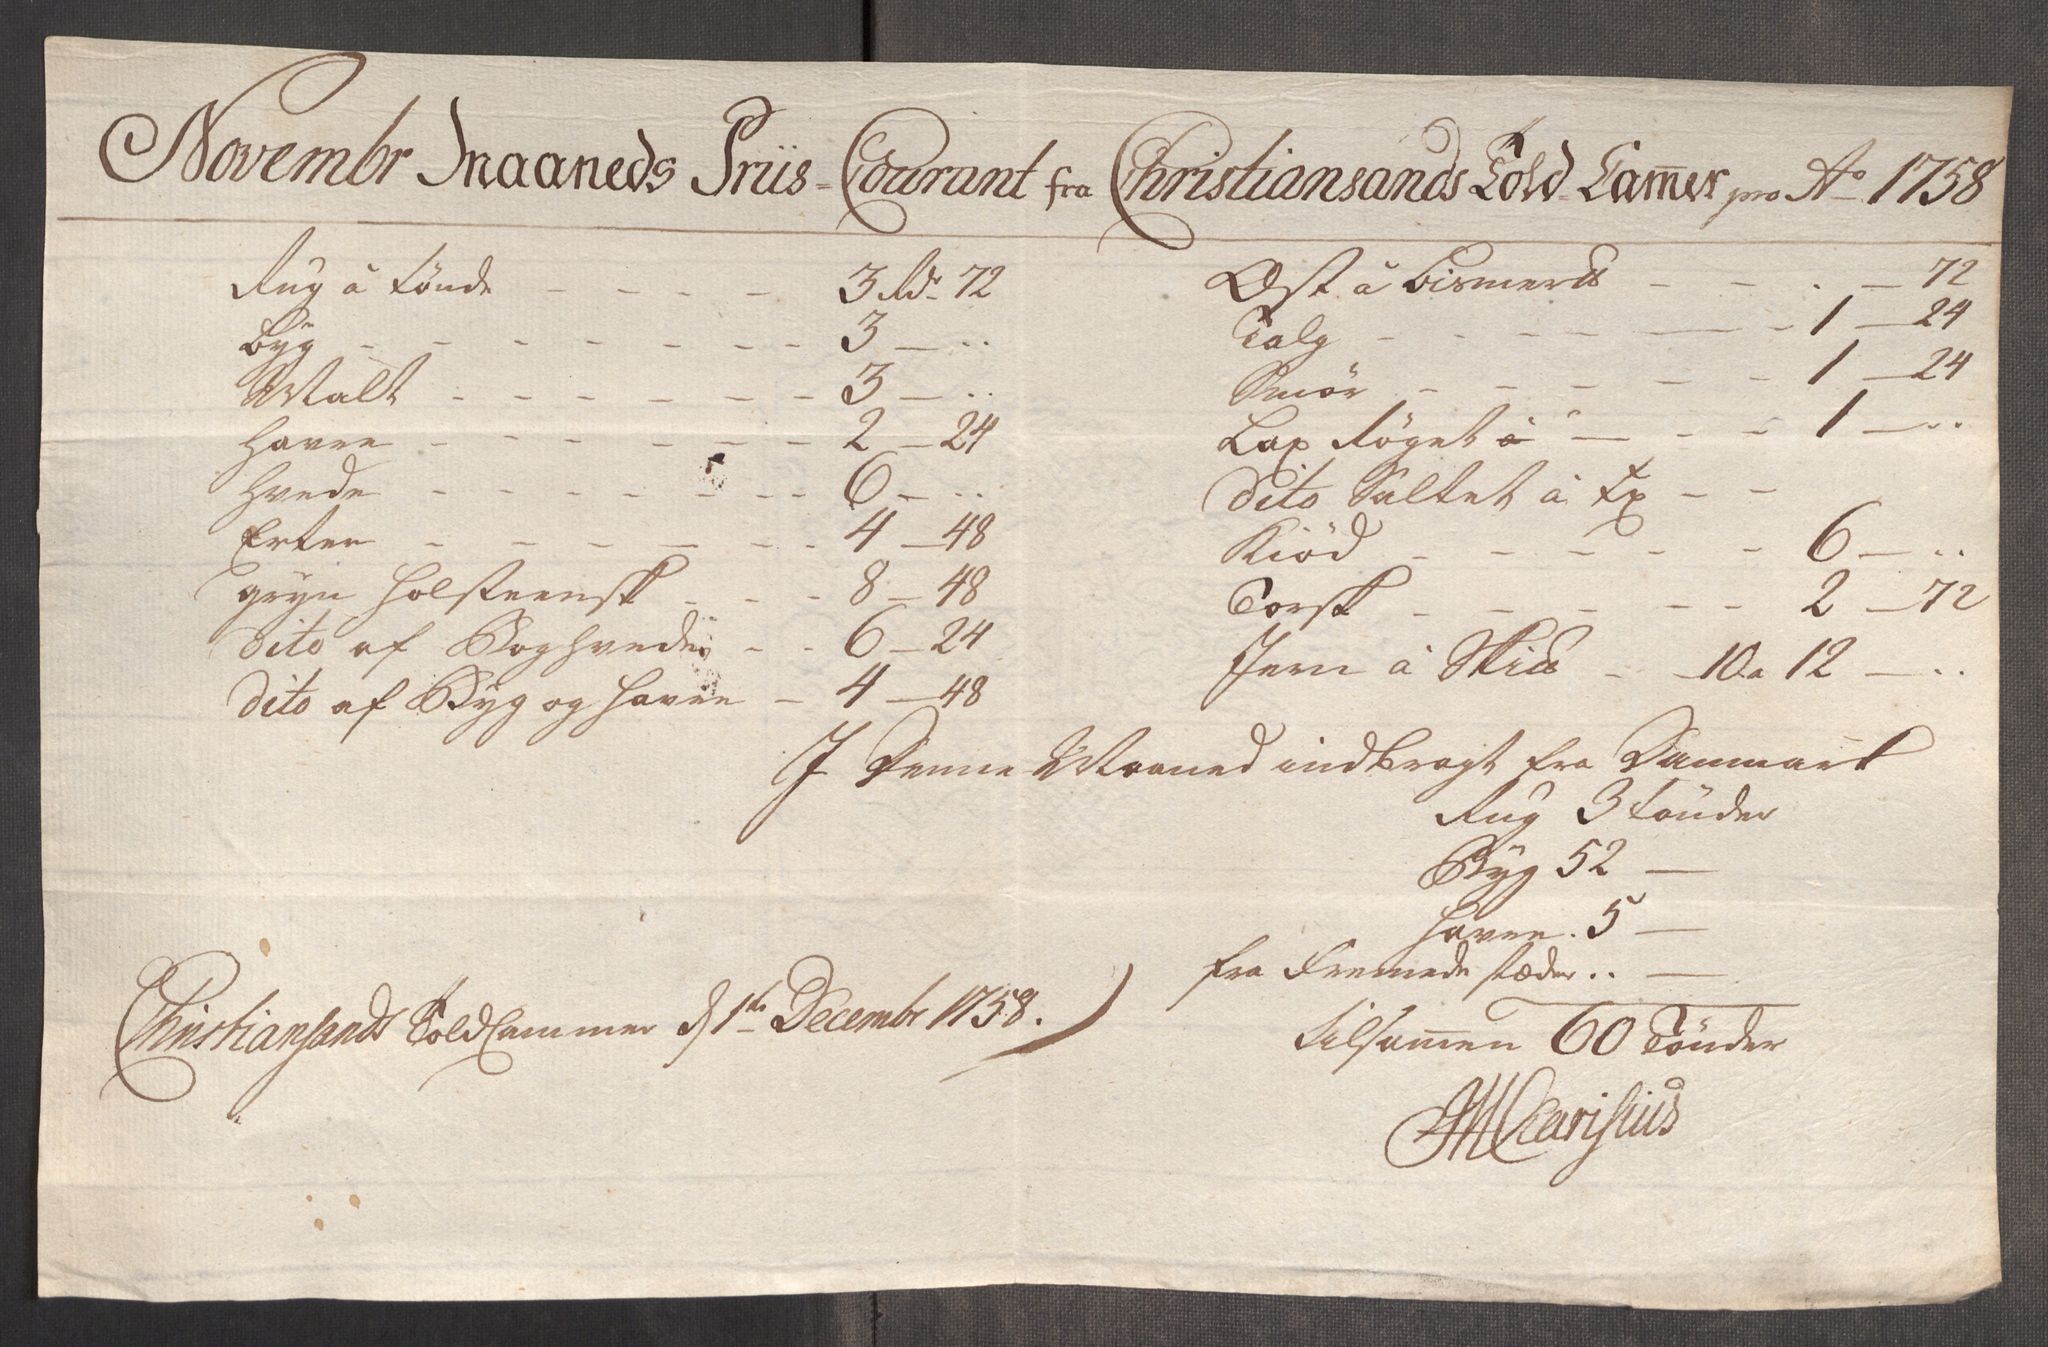 Novembr Maaneds Priis-Courant fra Christiansands Told-Cammer pro Ao 1758
Rug â Tönde - - - - 3 Rdr 72
Byg - - - - - - - - 3 - ..
Malt - - - - - - - 3 - ..
Havre - - - - - - 2 - 24
Hvede - - - - - - - 6 - ..
Erter - - - - - - 4 - 48
Gryn Holsteensk - - - 8 - 48
Dito af Boghvede - - 6 - 24
Dito af Byg og Havre - 4 - 48
Ost â Bismer℔ - - - - 72
Talg - - - - - - - 1 - 24
Smör - - - - - - 1 - 24
Lax Röget â " - - - 1 - ..
Dito Saltet â Tr - -
Kiöd - - - - - - 6 - ..
Torsk - - - - - - 2 - 72
Jern â Sk℔ - - 10 a 12 - ..
I Denne Maaned indbragt fra Danmark
Rug 3 Tönder
Byg 52 -
Havre. 5 -
fra Fremede stæder .. -
Tilsammen 60 Tönder
Christiansands Told Cammer d 1te Decembr 1758.